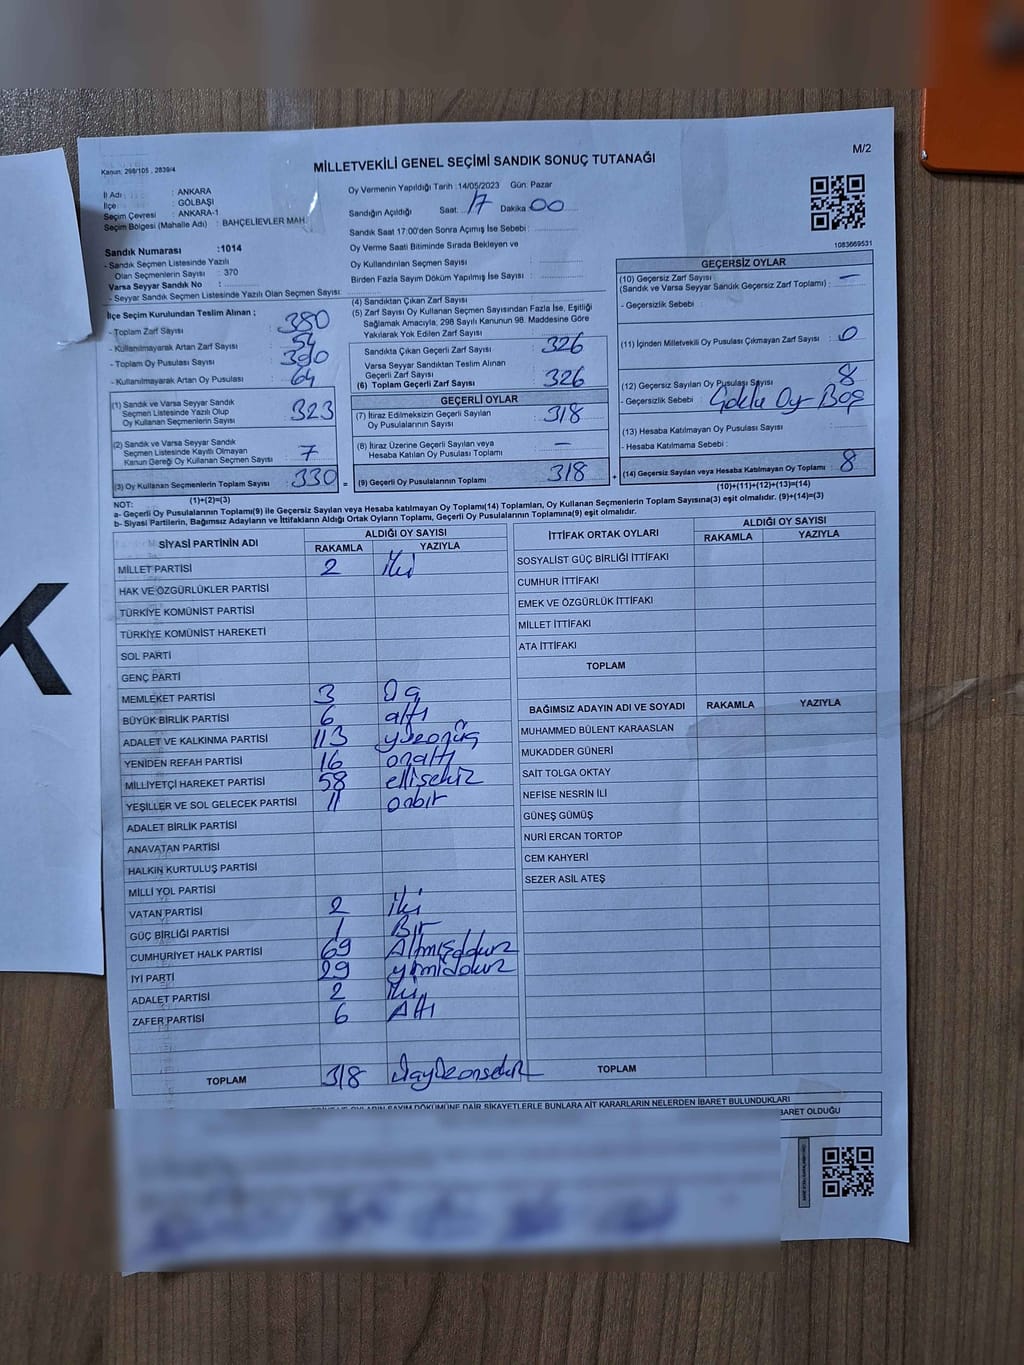 M/2
MİLLETVEKİLİ GENEL SEÇİMİ SANDIK SONUÇ TUTANAĞI
Kanun: 298/105 , 2839/4
İl Adı : ANKARA
İlçe : GÖLBAŞI
Seçim Çevresi : ANKARA-1
Seçim Bölgesi (Mahalle Adı) : BAHÇELİEVLER MAH.
Oy Vermenin Yapıldığı Tarih :14/05/2023 Gün: Pazar
Sandığın Açıldığı Saat: 17 Dakika 00
Sandık Saat 17:00'den Sonra Açımış İse Sebebi :
Oy Verme Saati Bitiminde Sırada Bekleyen ve
Oy Kullandırılan Seçmen Sayısı :
Birden Fazla Sayım Döküm Yapılmış İse Sayısı :
1083669531
Sandık Numarası :1014
- Sandık Seçmen Listesinde Yazılı
Olan Seçmenlerin Sayısı : 370
Varsa Seyyar Sandık No :
- Seyyar Sandık Seçmen Listesinde Yazılı Olan Seçmen Sayısı:
İlçe Seçim Kurulundan Teslim Alınan ;
- Toplam Zarf Sayısı : 380
- Kullanılmayarak Artan Zarf Sayısı : 54
- Toplam Oy Pusulası Sayısı :
- Kullanılmayarak Artan Oy Pusulası : 64
(1) Sandık ve Varsa Seyyar Sandık
Seçmen Listesinde Yazılı Olup
Oy Kullanan Seçmenlerin Sayısı : 323
(2) Sandık ve Varsa Seyyar Sandık
Seçmen Listesinde Kayıtlı Olmayan
Kanun Gereği Oy Kullanan Seçmen Sayısı : 7
(3) Oy Kullanan Seçmenlerin Toplam Sayısı : 330
(1)+(2)=(3)
(4) Sandıktan Çıkan Zarf Sayısı :
(5) Zarf Sayısı Oy Kullanan Seçmen Sayısından Fazla İse, Eşitliği
Sağlamak Amacıyla; 298 Sayılı Kanunun 98. Maddesine Göre
Yakılarak Yok Edilen Zarf Sayısı :
Sandıkta Çıkan Geçerli Zarf Sayısı : 326
Varsa Seyyar Sandıktan Teslim Alınan
Geçerli Zarf Sayısı :
(6) Toplam Geçerli Zarf Sayısı : 326
GEÇERLİ OYLAR
(7) İtiraz Edilmeksizin Geçerli Sayılan
Oy Pusulalarının Sayısı : 318
(8) İtiraz Üzerine Geçerli Sayılan veya
Hesaba Katılan Oy Pusulası Toplamı : –
= (9) Geçerli Oy Pusulalarının Toplamı : 318
GEÇERSİZ OYLAR
(10) Geçersiz Zarf Sayısı
(Sandık ve Varsa Seyyar Sandık Geçersiz Zarf Toplamı) : –
- Geçersizlik Sebebi :
(11) İçinden Milletvekili Oy Pusulası Çıkmayan Zarf Sayısı : 0
(12) Geçersiz Sayılan Oy Pusulası Sayısı : 8
- Geçersizlik Sebebi : Oy Boş
(13) Hesaba Katılmayan Oy Pusulası Sayısı :
- Hesaba Katılmama Sebebi :
+ (14) Geçersiz Sayılan veya Hesaba Katılmayan Oy Toplamı : 8
(10)+(11)+(12)+(13)=(14)
NOT:
a- Geçerli Oy Pusulalarının Toplamı(9) ile Geçersiz Sayılan veya Hesaba Katılmayan Oy Toplamı(14) Toplamları, Oy Kullanan Seçmenlerin Toplam Sayısına(3) eşit olmalıdır. (9)+(14)=(3)
b- Siyasi Partilerin, Bağımsız Adayların ve İttifakların Aldığı Ortak Oyların Toplamı, Geçerli Oy Pusulalarının Toplamına(9) eşit olmalıdır.
SİYASİ PARTİNİN ADI ALDIĞI OY SAYISI
RAKAMLA YAZIYLA
MİLLET PARTİSİ 2 İki
HAK VE ÖZGÜRLÜKLER PARTİSİ
TÜRKİYE KOMÜNİST PARTİSİ
TÜRKİYE KOMÜNİST HAREKETİ
SOL PARTİ
GENÇ PARTİ
MEMLEKET PARTİSİ 3 Üç
BÜYÜK BİRLİK PARTİSİ 6 altı
ADALET VE KALKINMA PARTİSİ 113 yüzonüç
YENİDEN REFAH PARTİSİ 16 onaltı
MİLLİYETÇİ HAREKET PARTİSİ 58 ellisekiz
YEŞİLLER VE SOL GELECEK PARTİSİ 11 onbir
ADALET BİRLİK PARTİSİ
ANAVATAN PARTİSİ
HALKIN KURTULUŞ PARTİSİ
MİLLİ YOL PARTİSİ
VATAN PARTİSİ 2 iki
GÜÇ BİRLİĞİ PARTİSİ 1 Bir
CUMHURİYET HALK PARTİSİ 69 Altmışdokuz
İYİ PARTİ 29 yirmidokuz
ADALET PARTİSİ 2 iki
ZAFER PARTİSİ 6 Altı
TOPLAM 318 üçyüzonsekiz
İTTİFAK ORTAK OYLARI ALDIĞI OY SAYISI
RAKAMLA YAZIYLA
SOSYALİST GÜÇ BİRLİĞİ İTTİFAKI
CUMHUR İTTİFAKI
EMEK VE ÖZGÜRLÜK İTTİFAKI
MİLLET İTTİFAKI
ATA İTTİFAKI
TOPLAM
BAĞIMSIZ ADAYIN ADI VE SOYADI RAKAMLA YAZIYLA
MUHAMMED BÜLENT KARAASLAN
MUKADDER GÜNERİ
SAİT TOLGA OKTAY
NEFİSE NESRİN İLİ
GÜNEŞ GÜMÜŞ
NURİ ERCAN TORTOP
CEM KAHYERİ
SEZER ASİL ATEŞ
TOPLAM
OYLARIN SAYIM DÖKÜMÜNE DAİR ŞİKAYETLERLE BUNLARA AİT KARARLARIN NELERDEN İBARET BULUNDUKLARI
İBARET OLDUĞU
K